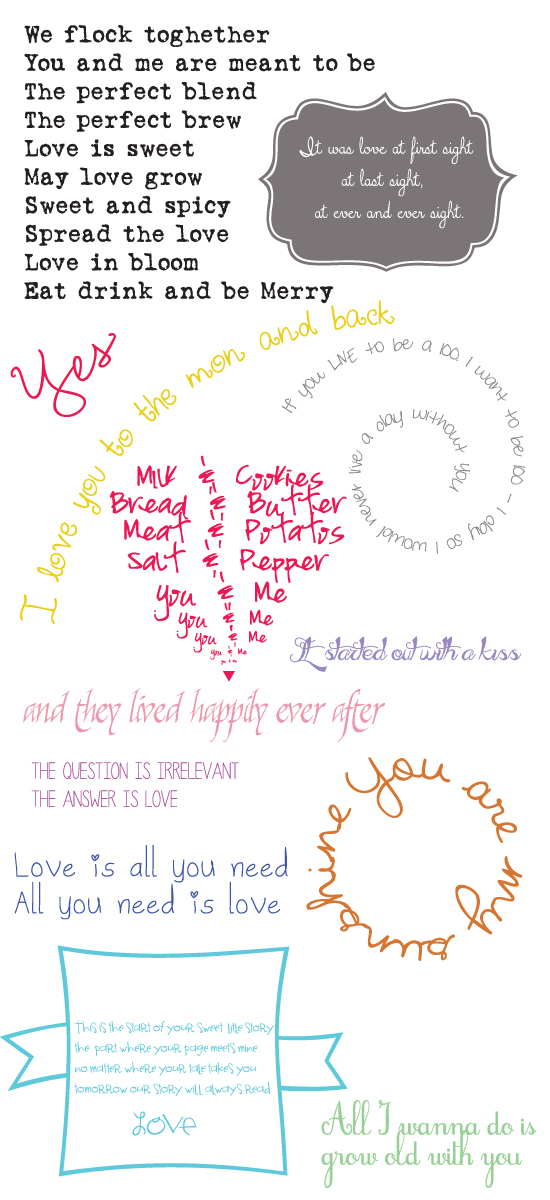 We flock toghether
You and me are meant to be
The perfect blend
The perfect brew
Love is sweet
May love grow
Sweet and spicy
Spread the love
Love in bloom
Eat drink and be Merry
It was love at first sight
at last sight,
at ever and ever sight.
Yes
I love you to the mon and back
If you LIVE to be a 100 I want to be 100 - 1 day so I would never live a day without you
Milk & Cookies
Bread & Butter
Meat & Potatos
Salt & Pepper
You & Me
You & Me
You & Me
You & Me
It started out with a kiss
and they lived happily ever after
THE QUESTION IS IRRELEVANT
THE ANSWER IS LOVE
You are my sunshine
Love is all you need
All you need is love
This is the start of your sweet little story
the part where your page meets mine
no matter where your tale takes you
tomorrow our story will always read
Love
All I wanna do is
grow old with you